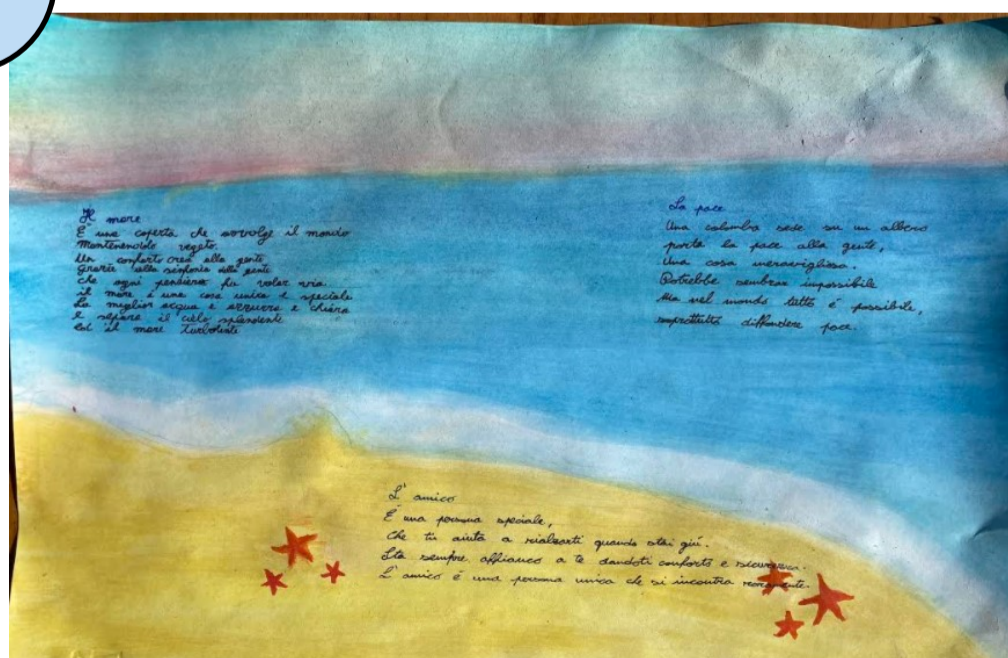 Il mare
È una coperta che avvolge il mondo
Mantenendolo vegeto.
Un conforto crea alla gente
Grazie alla sinfonia della gente
che ogni pensiero fa volar via
il mare è una cosa unica e speciale
La miglior acqua è azzurra e chiara
e separa il cielo splendente
il mare turbolento
La pace
Una colomba sede su un albero
porta la pace alla gente,
Una cosa meravigliosa.
Potrebbe sembrar impossibile
Ma nel mondo tutto è possibile,
soprattutto diffondere pace.
L'amico
È una persona speciale,
Che ti aiuta a rialzarti quando stai giù.
Sta sempre affianco a te dandoti conforto e sicurezza.
L'amico è una persona unica che si incontra raramente.